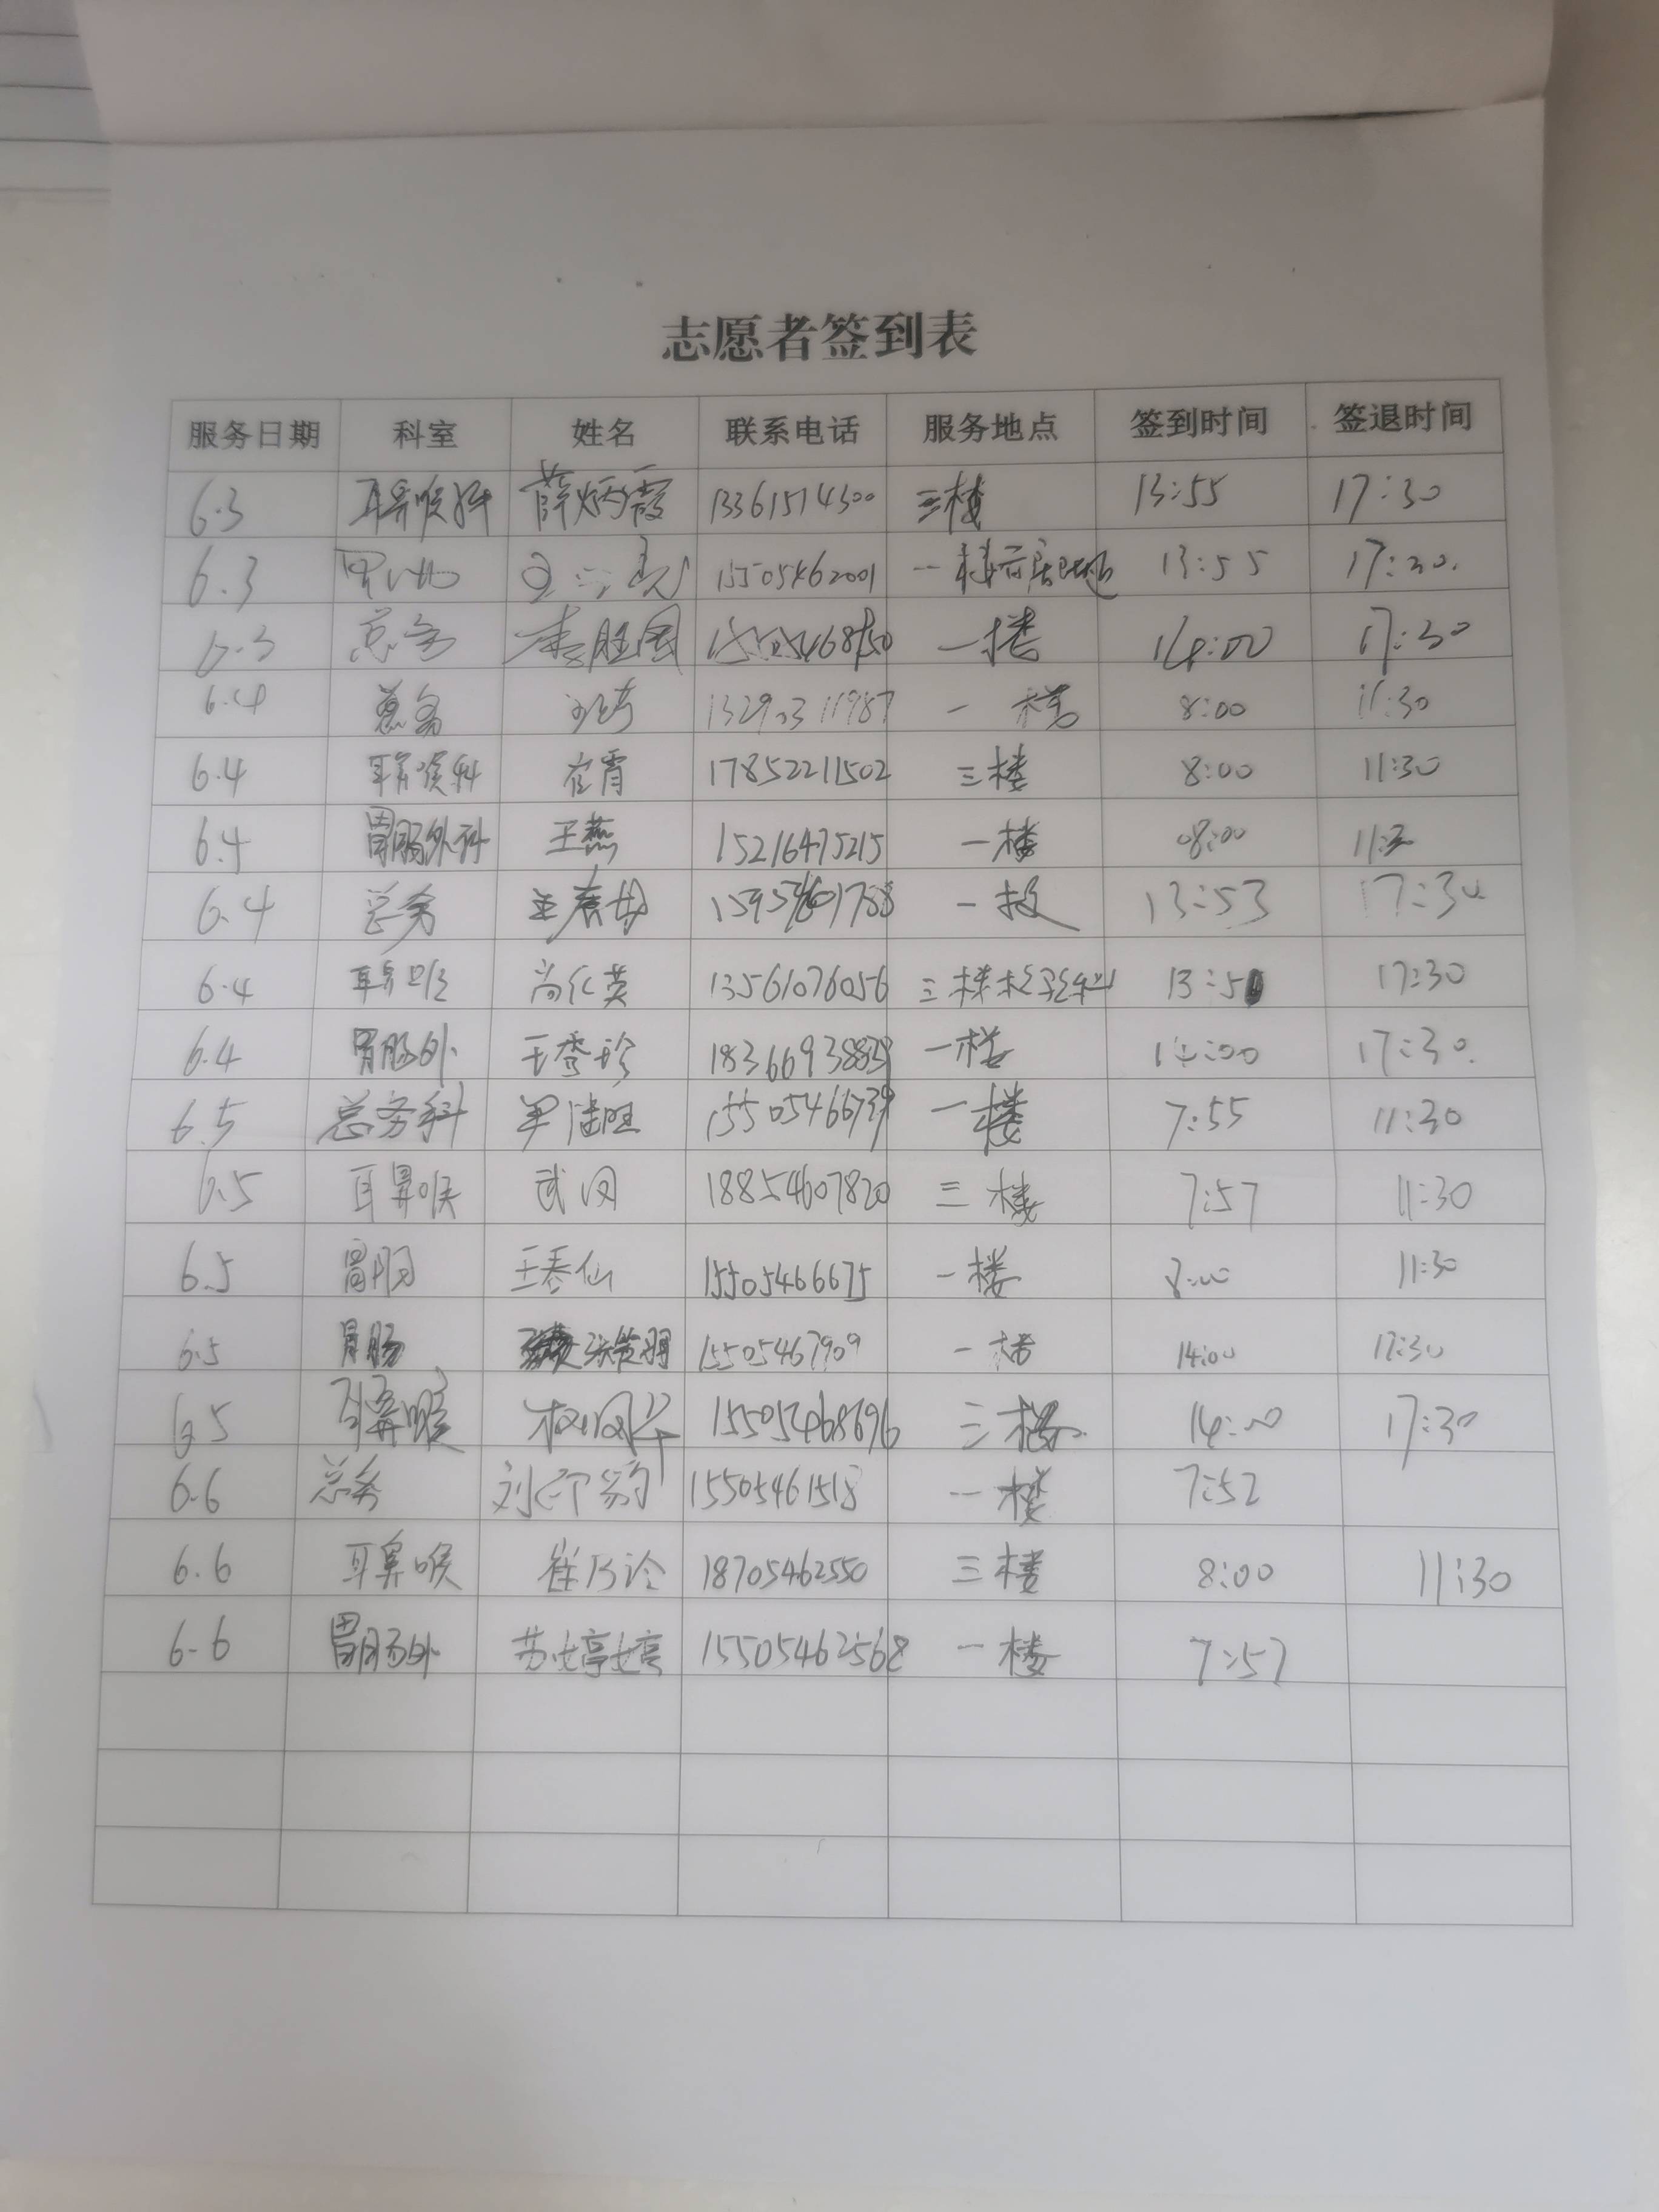 志愿者签到表
服务日期 科室 姓名 联系电话 服务地点 签到时间 签退时间
6.3 耳鼻喉科 薛炳霞 13361514300 三楼 13:55 17:30
6.3 15505462001 一楼 13:55 17:30.
6.3 总务 李胜国 一楼 14:00 17:30
6.4 总务 一楼 8:00 11:30
6.4 耳鼻喉科 崔霄 17852211502 三楼 8:00 11:30
6.4 胃肠外科 王燕 15216475215 一楼 08:00 11:30
6.4 总务 一楼 13:53 17:30
6.4 耳鼻喉 尚化英 13561076056 三楼 13:50 17:30
6.4 胃肠外 王秀珍 一楼 14:00 17:30.
6.5 总务科 15505466739 一楼 7:55 11:30
6.5 耳鼻喉 武汶 18854607820 三楼 7:57 11:30
6.5 胃肠 王春仙 15505466675 一楼 8:00 11:30
6.5 胃肠 15505467909 一楼 14:00 17:30
6.5 耳鼻喉 权凤华 15505468696 三楼 14:00 17:30
6.6 总务 15505461518 一楼 7:52
6.6 耳鼻喉 崔乃玲 18705462550 三楼 8:00 11:30
6.6 胃肠外 苏婷婷 15505462568 一楼 7:57